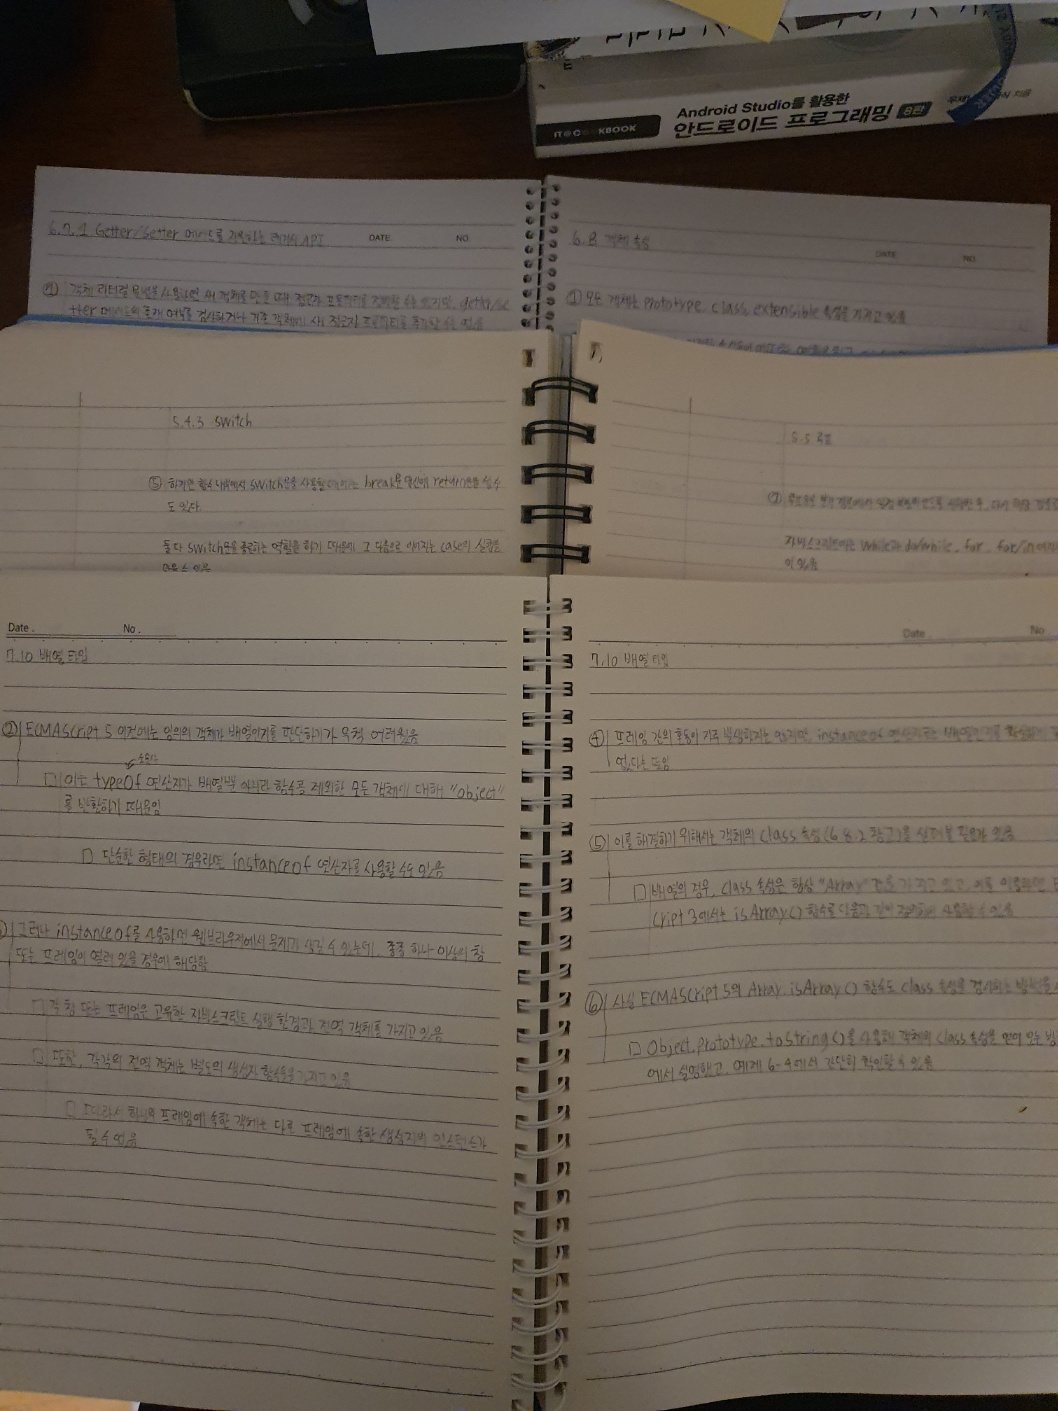 Android Studio를 활용한
안드로이드 프로그래밍 6판
IT COOKBOOK
지음
6.7.1 Getter/Setter 메서드를 지원하는 레거시 API
DATE. NO.
① 객체 리터럴 문법을 사용하면 새 객체를 만들 때 접근자 프로퍼티를 정의할 수는 있지만, getter/se
tter 메서드의 존재 여부를 검사하거나 기존 객체에 새 접근자 프로퍼티를 추가할 수는 없음
6.8 객체 속성
DATE NO.
① 모든 객체는 prototype, class, extensible 속성을 가지고 있음
5.4.3 switch
⑤ 하지만 함수 내부에서 switch문을 사용할 때에는 break문 대신에 return문을 쓸 수
도 있다.
둘 다 switch문을 종료하는 역할을 하기 때문에 그 다음으로 이어지는 case의 실행을
막을 수 있음
5.5 루프
자바스크립트에는 while과 do/while, for, for/in
이 있음
Date . No .
7.10 배열 타입
② ECMAScript 5 이전에는 임의의 객체가 배열인지를 판단하기가 무척 어려웠음
□ 이는 typeof 연산자가 배열뿐 아니라 함수를 제외한 모든 객체에 대해 "object"
를 반환하기 때문임
□ 단순한 형태의 경우라면 instanceof 연산자를 사용할 수도 있음
그러나 instanceof를 사용하면 웹브라우저에서 문제가 생길 수 있는데, 종종 하나 이상의 창
또는 프레임이 열려 있을 경우에 해당함
□ 각 창 또는 프레임은 고유한 자바스크립트 실행 환경과 전역 객체를 가지고 있음
□ 또한, 각각의 전역 객체는 별도의 생성자 함수들을 가지고 있음
□ 따라서 하나의 프레임에 속한 객체는 다른 프레임에 속한 생성자의 인스턴스가
될 수 없음
Date No
7.10 배열 타입
④ 프레임 간의 혼동이 자주 발생하지는 않지만, instanceof 연산자로는 배열인지를
없다는 뜻임
⑤ 이를 해결하기 위해서는 객체의 class 속성(6.8.2 참고)을 살펴볼 필요가 있음
□ 배열의 경우, class 속성은 항상 "Array" 값을 가지고 있고, 이를 이용하면
cript 3에서는 isArray() 함수를 다음과 같이 정의해 사용할 수 있음
⑥ 사실 ECMAScript 5의 Array.isArray() 함수도 class 속성을 검사하는 방법을
□ Object.prototype.toString()을 사용해 객체의 class 속성을 얻어 오는 방
에서 설명했고, 예제 6-4에서 간단히 확인할 수 있음